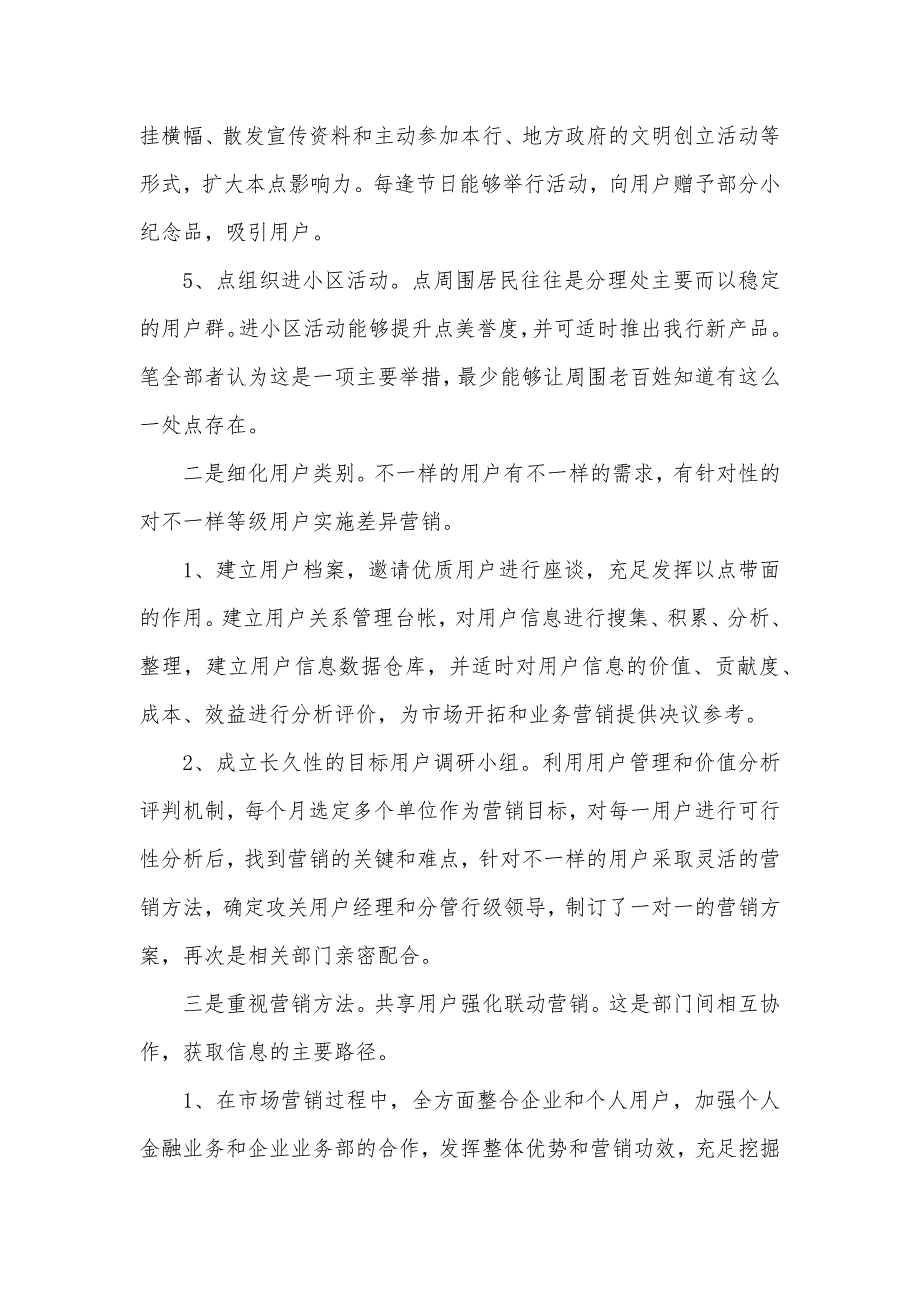 挂横幅、散发宣传资料和主动参加本行、地方政府的文明创立活动等
形式，扩大本点影响力。每逢节日能够举行活动，向用户赠予部分小
纪念品，吸引用户。
5、点组织进小区活动。点周围居民往往是分理处主要而以稳定
的用户群。进小区活动能够提升点美誉度，并可适时推出我行新产品。
笔全部者认为这是一项主要举措，最少能够让周围老百姓知道有这么
一处点存在。
二是细化用户类别。不一样的用户有不一样的需求，有针对性的
对不一样等级用户实施差异营销。
1、建立用户档案，邀请优质用户进行座谈，充足发挥以点带面
的作用。建立用户关系管理台帐，对用户信息进行搜集、积累、分析、
整理，建立用户信息数据仓库，并适时对用户信息的价值、贡献度、
成本、效益进行分析评价，为市场开拓和业务营销提供决议参考。
2、成立长久性的目标用户调研小组。利用用户管理和价值分析
评判机制，每个月选定多个单位作为营销目标，对每一用户进行可行
性分析后，找到营销的关键和难点，针对不一样的用户采取灵活的营
销方法，确定攻关用户经理和分管行级领导，制订了一对一的营销方
案，再次是相关部门亲密配合。
三是重视营销方法。共享用户强化联动营销。这是部门间相互协
作，获取信息的主要路径。
1、在市场营销过程中，全方面整合企业和个人用户，加强个人
金融业务和企业业务部的合作，发挥整体优势和营销功效，充足挖掘